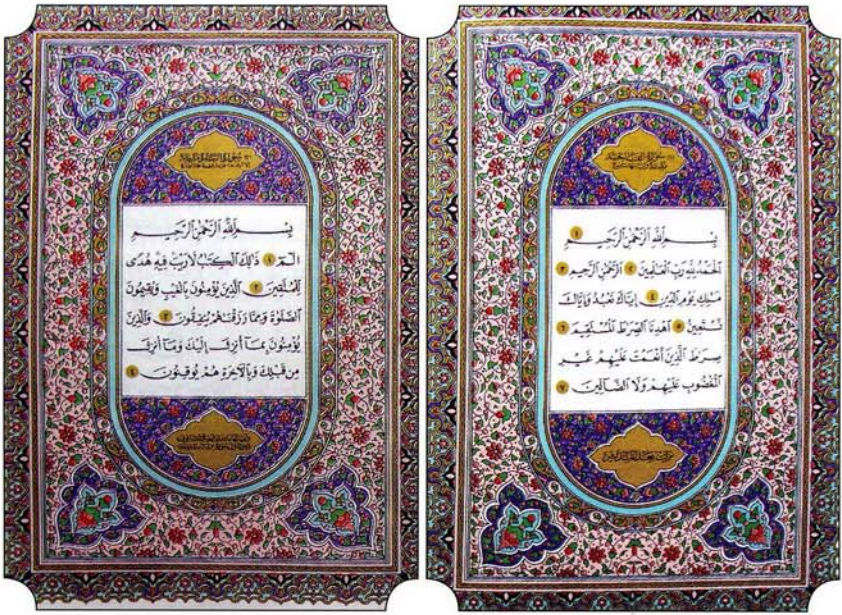 سورة الفاتحة
بِسْمِ ٱللَّهِ ٱلرَّحْمَٰنِ ٱلرَّحِيمِ ١
ٱلْحَمْدُ لِلَّهِ رَبِّ ٱلْعَٰلَمِينَ ٢ ٱلرَّحْمَٰنِ ٱلرَّحِيمِ ٣
مَٰلِكِ يَوْمِ ٱلدِّينِ ٤ إِيَّاكَ نَعْبُدُ وَإِيَّاكَ
نَسْتَعِينُ ٥ ٱهْدِنَا ٱلصِّرَٰطَ ٱلْمُسْتَقِيمَ ٦
صِرَٰطَ ٱلَّذِينَ أَنْعَمْتَ عَلَيْهِمْ غَيْرِ
ٱلْمَغْضُوبِ عَلَيْهِمْ وَلَا ٱلضَّآلِّينَ ٧
سورة البقرة
بِسْمِ ٱللَّهِ ٱلرَّحْمَٰنِ ٱلرَّحِيمِ
الٓمٓ ١ ذَٰلِكَ ٱلْكِتَٰبُ لَا رَيْبَ فِيهِ هُدًى
لِّلْمُتَّقِينَ ٢ ٱلَّذِينَ يُؤْمِنُونَ بِٱلْغَيْبِ وَيُقِيمُونَ
ٱلصَّلَوٰةَ وَمِمَّا رَزَقْنَٰهُمْ يُنفِقُونَ ٣ وَٱلَّذِينَ
يُؤْمِنُونَ بِمَآ أُنزِلَ إِلَيْكَ وَمَآ أُنزِلَ
مِن قَبْلِكَ وَبِٱلْءَاخِرَةِ هُمْ يُوقِنُونَ ٤